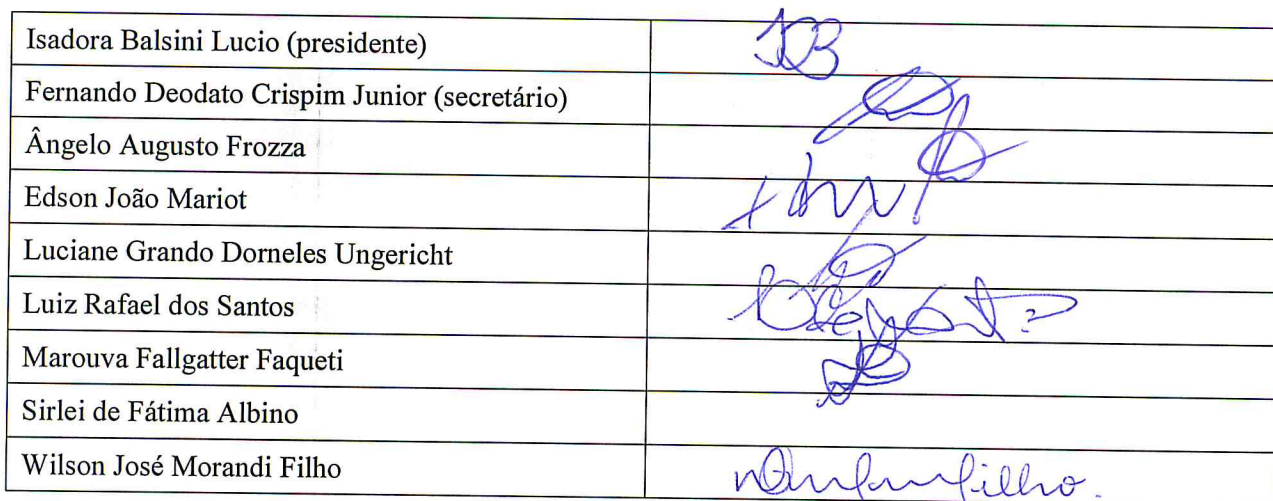 Isadora Balsini Lucio (presidente)
Fernando Deodato Crispim Junior (secretário)
Ângelo Augusto Frozza
Edson João Mariot
Luciane Grando Dorneles Ungericht
Luiz Rafael dos Santos
Marouva Fallgatter Faqueti
Sirlei de Fátima Albino
Wilson José Morandi Filho